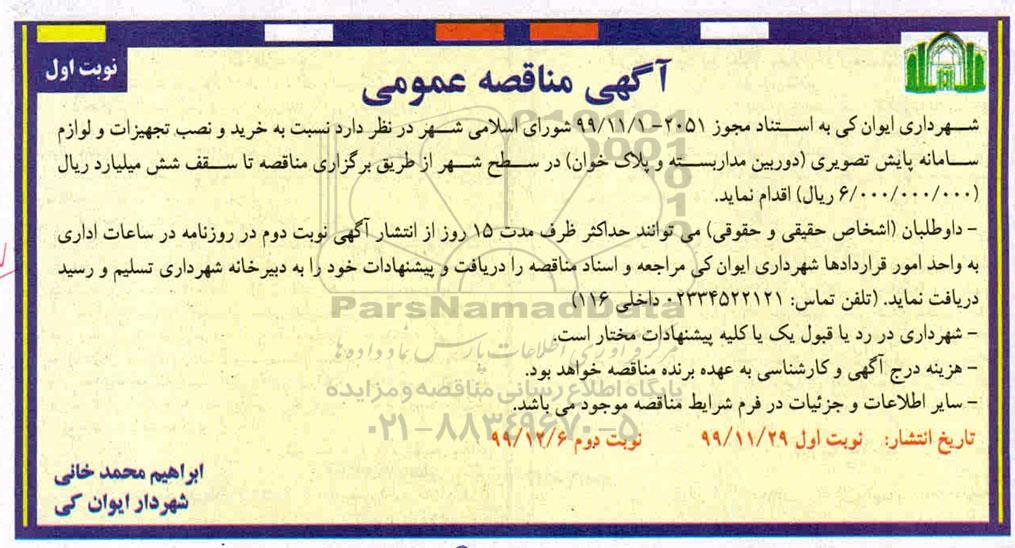 نوبت اول
آگهی مناقصه عمومی
شهرداری ایوان کی به استناد مجوز ۲۰۵۱-۹۹/۱۱/۱ شورای اسلامی شهر در نظر دارد نسبت به خرید و نصب تجهیزات و لوازم
سامانه پایش تصویری (دوربین مداربسته و پلاک خوان) در سطح شهر از طریق برگزاری مناقصه تا سقف شش میلیارد ریال
(۶/۰۰۰/۰۰۰/۰۰۰ ریال) اقدام نماید.
- داوطلبان (اشخاص حقیقی و حقوقی) می توانند حداکثر ظرف مدت ۱۵ روز از انتشار آگهی نوبت دوم در روزنامه در ساعات اداری
به واحد امور قراردادها شهرداری ایوان کی مراجعه و اسناد مناقصه را دریافت و پیشنهادات خود را به دبیرخانه شهرداری تسلیم و رسید
دریافت نماید. (تلفن تماس: ۰۲۳۳۴۵۲۲۱۲۱ داخلی ۱۱۶)
ParsNamadData
- شهرداری در رد یا قبول یک یا کلیه پیشنهادات مختار است.
مرکز فرآوری اطلاعات پارس نماد داده ها
- هزینه درج آگهی و کارشناسی به عهده برنده مناقصه خواهد بود.
پایگاه اطلاع رسانی مناقصه و مزایده
- سایر اطلاعات و جزئیات در فرم شرایط مناقصه موجود می باشد.
۰۲۱-۸۸۳۴۹۶۷۰-۵
تاریخ انتشار: نوبت اول ۹۹/۱۱/۲۹ نوبت دوم ۹۹/۱۲/۶
ابراهیم محمد خانی
شهردار ایوان کی